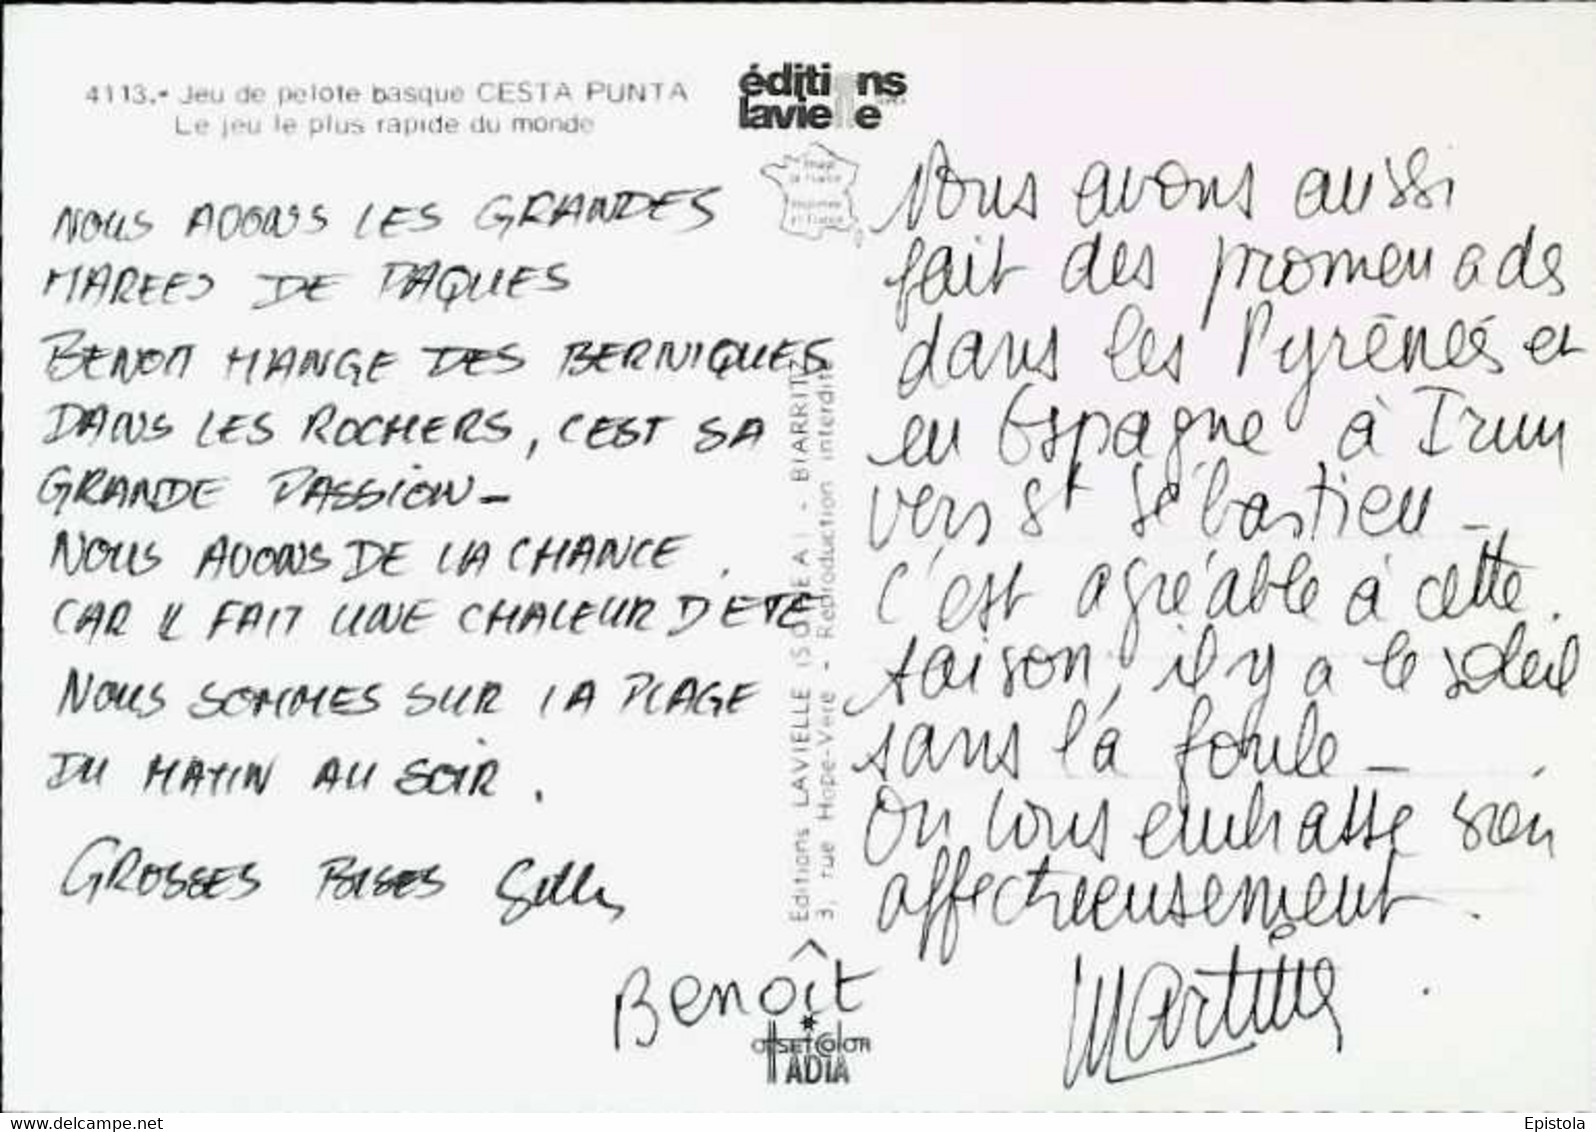 4113.- Jeu de pelote basque CESTA PUNTA
Le jeu le plus rapide du monde
éditions
lavielle
NOUS AVONS LES GRANDES
MAREES DE PAQUES
BENOIT MANGE DES BERNIQUES
DANS LES ROCHERS, C'EST SA
GRANDE PASSION -
NOUS AVONS DE LA CHANCE.
CAR IL FAIT UNE CHALEUR D'ETE
NOUS SOMMES SUR LA PLAGE
DU MATIN AU SOIR.
GROSSES BISES Gilles
Benoît
Editions LAVIELLE (S.O.D.E.A.) - BIARRITZ
3, rue Hope-Vere - Reproduction interdite
OffSETCOLOR
IADIA
Nous avons aussi
fait des promenades
dans les Pyrénées et
en Espagne à Irun
vers St Sébastien -
c'est agréable à cette
saison, il y a le soleil
sans la foule -
On vous embrasse bien
affectueusement.
Martine
delcampe.net
Epistola